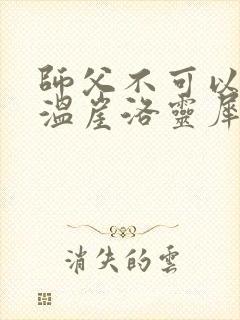 師父不可以
溫崖洛靈犀
消失的雲